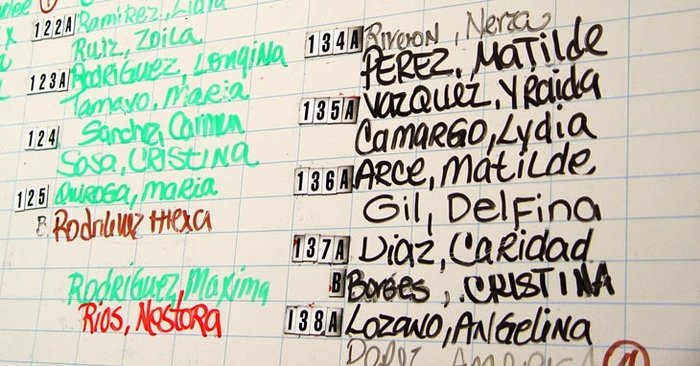 122A Ramirez, Lidia
Ruiz, Zoila
123A Rodríguez, Longina
Tamayo, Maria
124 Sánchez, Carmen
Sosa, CRISTINA
125 Quiroga, Maria
B Rodriguez
Rodríguez, Maxima
Rios, Nestora
134A Riveron, Nerza
PEREZ, MATILDE
135A VAZQUEZ, YRAIDA
CAMARGO, Lydia
136A ARCE, MATILDE
Gil, DELFINA
137A DIAZ, CARIDAD
B Borges, CRISTINA
138A LOZANO, ANGELINA
AMERICA